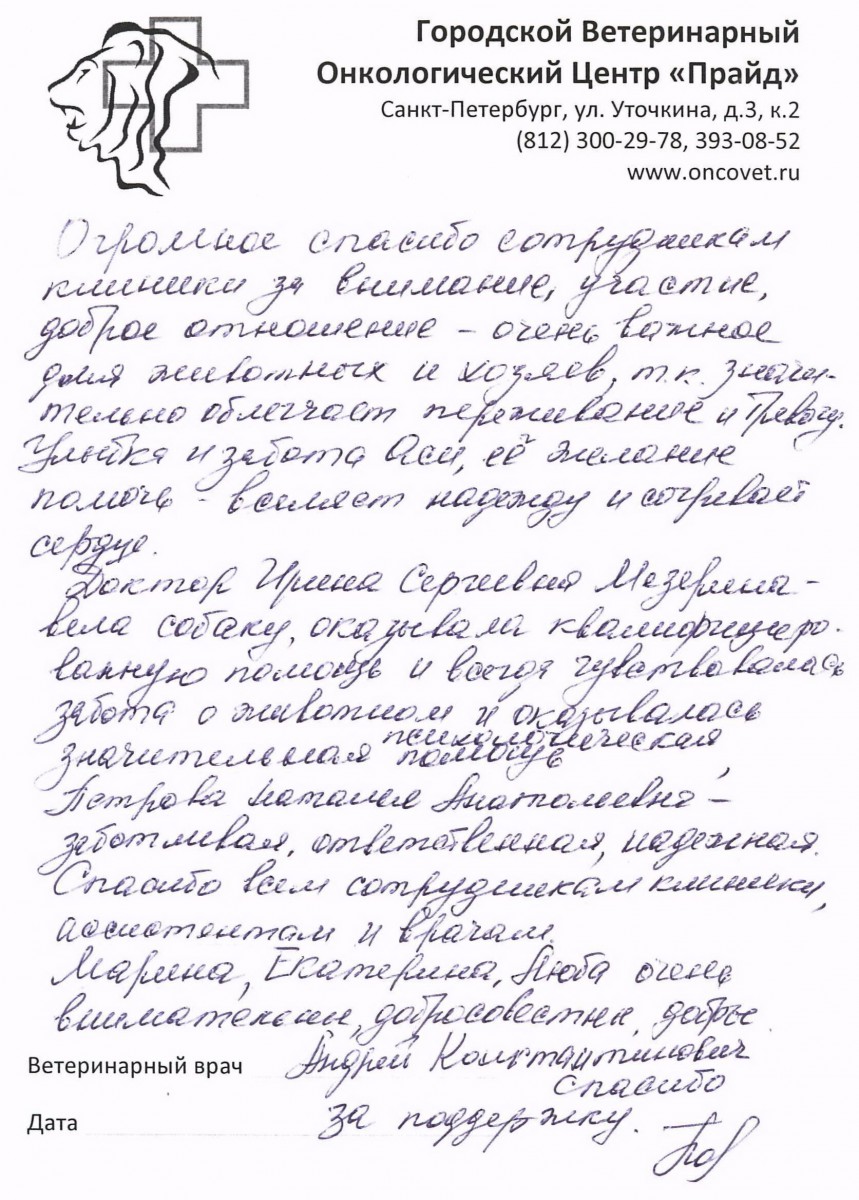 Городской Ветеринарный
Онкологический Центр «Прайд»
Санкт-Петербург, ул. Уточкина, д.3, к.2
(812) 300-29-78, 393-08-52
www.oncovet.ru
Огромное спасибо сотрудникам
клиники за внимание, участие,
доброе отношение – очень важное
для животных и хозяев, т.к. значи-
тельно облегчает переживание и тревогу.
Улыбка и забота Аси, её желание
помочь - вселяет надежду и согревает
сердце.
Доктор Ирина Сергеевна Мазерина -
вела собаку, оказывала квалифициро-
ванную помощь и всегда чувствовалась
забота о животном и оказывалась
значительная психологическая помощь,
Петрова Наталия Анатолиевна –
заботливая, ответственная, надежная.
Спасибо всем сотрудникам клиники,
ассистентам и врачам.
Марина, Екатерина, Люба очень
внимательны, добросовестны, добры
Ветеринарный врач Андрей Константинович
спасибо
Дата за поддержку.